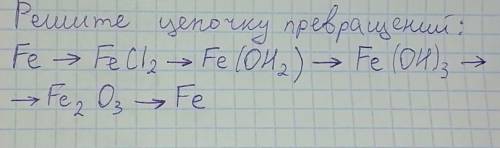 Решите цепочку превращений:
Fe → FeCl₂ → Fe(OH₂) → Fe(OH)₃ →
→ Fe₂O₃ → Fe